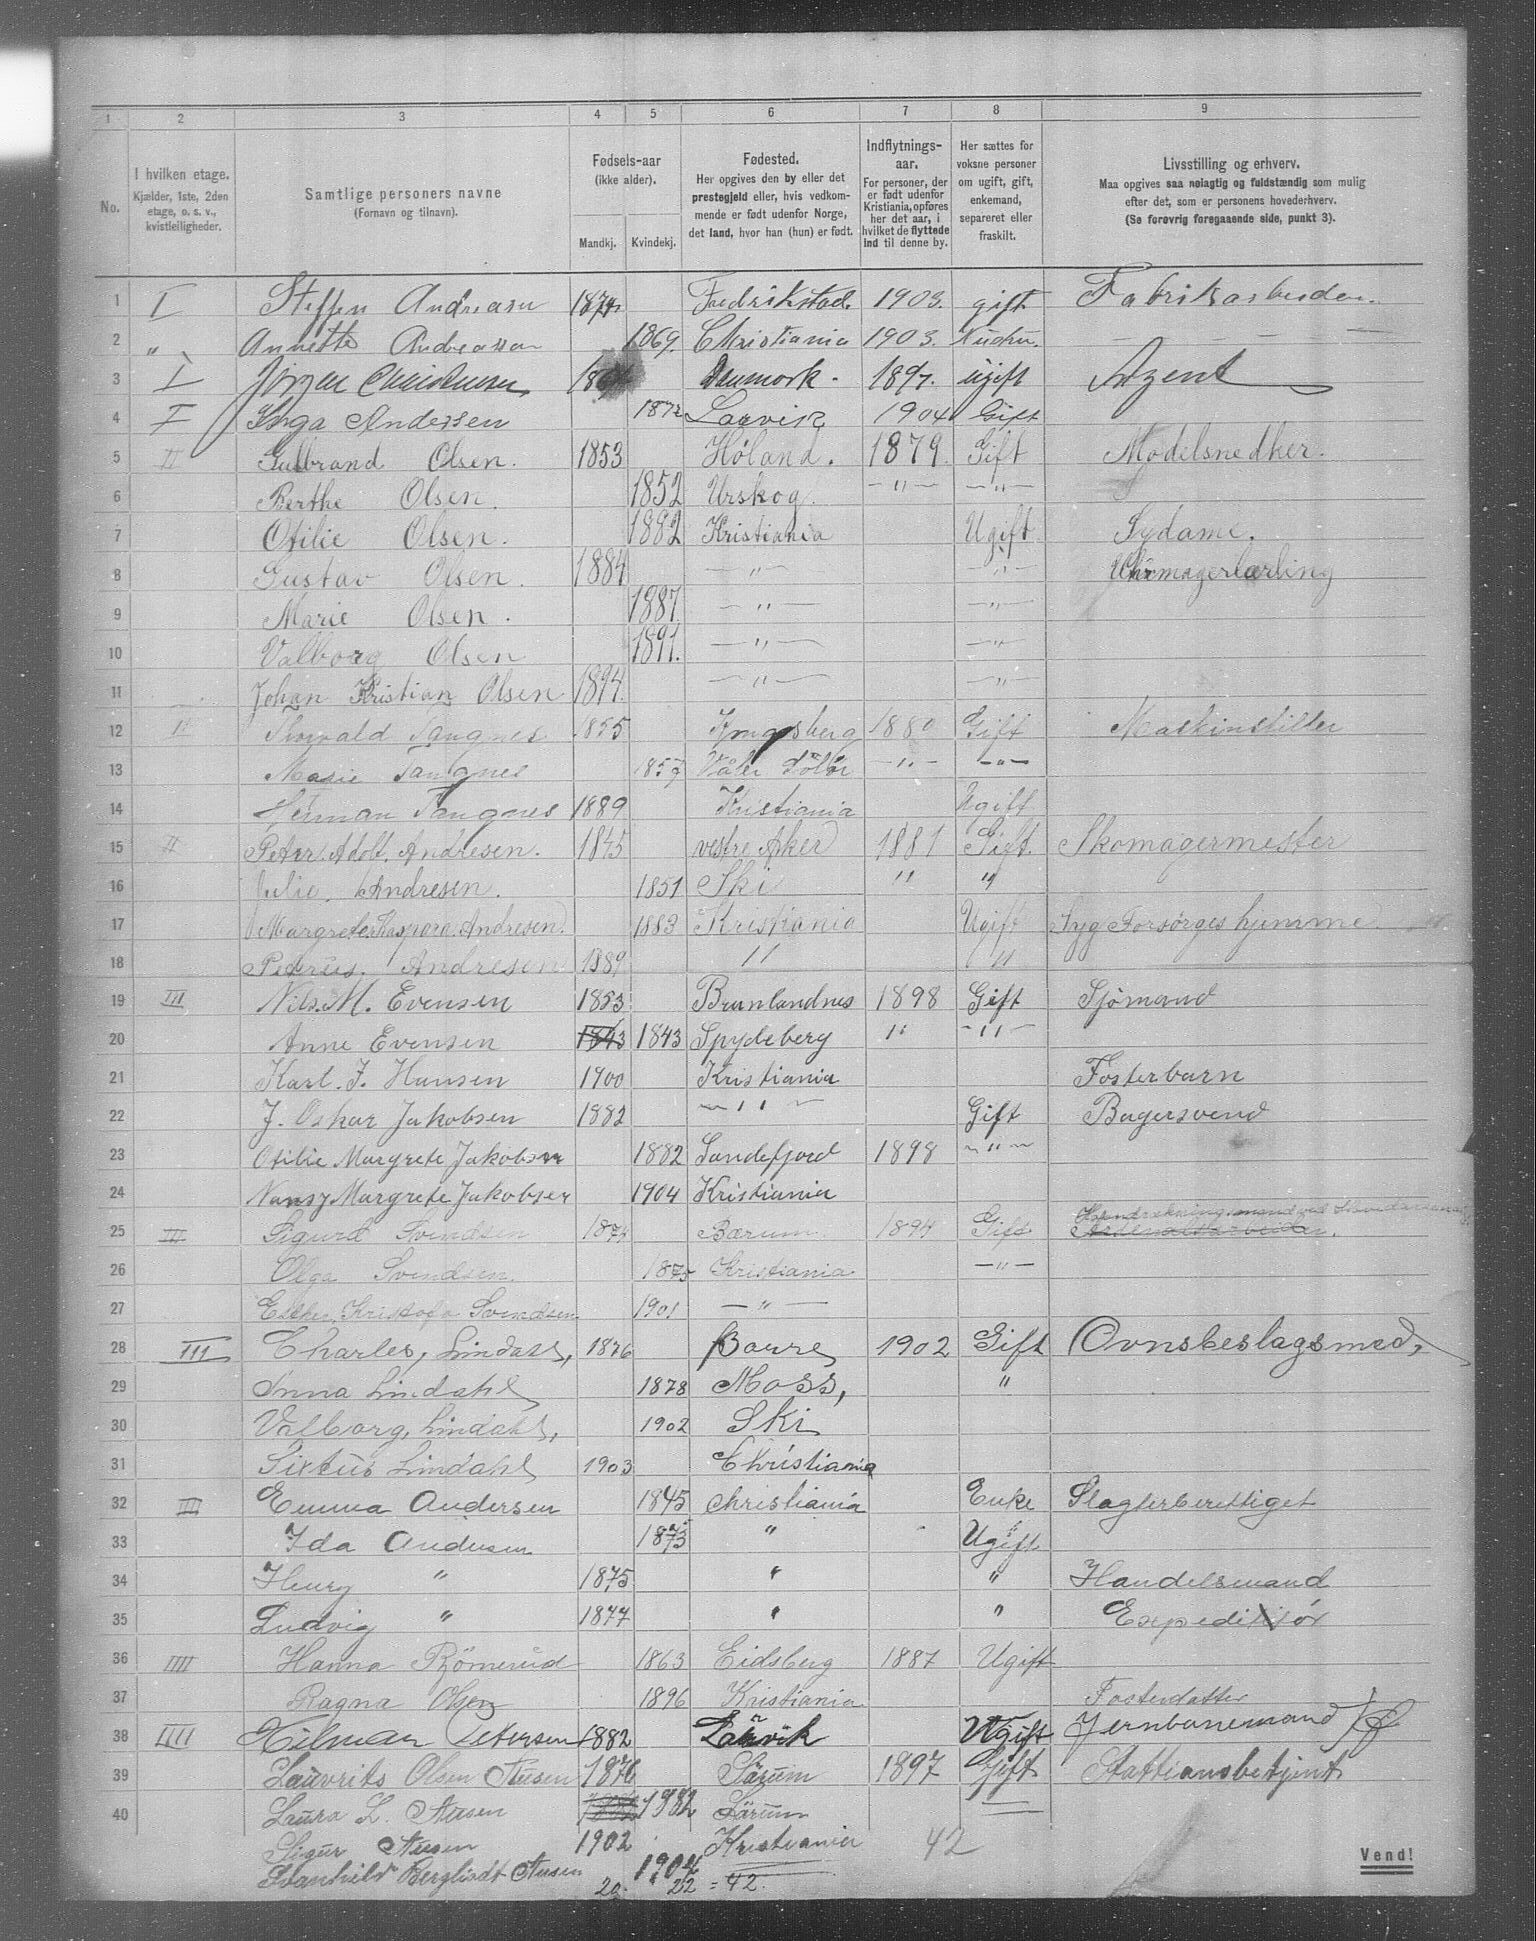 1 2 3 4 5 6 7 8 9
No.
I hvilken etage.
Kjælder, 1ste, 2den
etage, o. s. v.,
kvistleiligheder.
Samtlige personers navne
(Fornavn og tilnavn).
Fødsels-aar
(ikke alder).
Mandkj. Kvindekj.
Fødested.
Her opgives den by eller det
prestegjeld eller, hvis vedkom-
mende er født udenfor Norge,
det land, hvor han (hun) er født.
Indflytnings-
aar.
For personer, der
er født udenfor
Kristiania, opføres
her det aar, i
hvilket de flyttede
ind til denne by.
Her sættes for
voksne personer
om ugift, gift,
enkemand,
separeret eller
fraskilt.
Livsstilling og erhverv.
Maa opgives saa nøiagtig og fuldstændig som mulig
efter det, som er personens hovederhverv.
(Se forøvrig foregaaende side, punkt 3).
1 I Steffen Andreasen 1874 Fredrikstad 1903. gift Fabriksarbeider
2 " Annette Andreassen 1869. Christiania 1903.
3 I Jörgen Danmork. 1897. ugift Agent
4 I Inga Andersen 1872 Larvik 1904 Gift
5 II Gulbrand Olsen. 1853 Høland. 1879. Gift Modelsnedker.
6 Berthe Olsen. 1852 Urskog. — " — — " —
7 Otilie Olsen. 1882 Kristiania Ugift Sydame.
8 Gustav Olsen. 1884 — " — — " — Uhrmagerlærling
9 Marie Olsen. 1887. — " — — " —
10 Valborg Olsen 1891. — " — — " —
11 Johan Kristian Olsen 1894. — " — — " —
12 II Torvald Tangnes 1855 Kongsberg 1880 Gift Maskinstiller
13 Marie Tangnes 1857 Våler Solør — " — — " —
14 Herman Tangnes 1889 Kristiania Ugift
15 II Peter Adolf. Andresen. 1845 vestre Aker 1881 Gift. Skomagermester
16 Julie. Andresen. 1851 Ski " "
17 Margrete Kaspara. Andresen. 1883 Kristiania Ugift Syg Forsørges hjemme.
18 Petrus. Andresen 1889 " "
19 III Nils. M. Evensen 1853 Brunlandnes 1898 Gift Sjömand
20 Anne Evensen 1843 1843 Spydeberg " — " —
21 Karl. J. Hansen 1900 Kristiania Fosterbarn
22 J. Oskar Jakobsen 1882 — " — Gift Bagersvend
23 Otilie Margrete Jakobsen 1882 Sandefjord 1898 — " —
24 Nansy Margrete Jakobsen 1904 Kristiania
25 III Sigurd Svendsen 1874 Bærum 1894 Gift
26 Olga Svendsen. 1875 Kristiania — " —
27 Esther Kristofa Svendsen 1901 — " —
28 III Charles, Lindahl, 1876 Borre 1902 Gift Ovnsbeslagsmed,
29 Anna Lindahl 1878 Moss, "
30 Valborg, Lindahl, 1902 Ski
31 Sixtus Lindahl 1903 Christiania
32 III Emma Andersen 1845 Christiania Enke Slagterberettiget
33 Ida Andersen 1873 " Ugift
34 Henry " 1875 " " Handelsmand
35 Ludvig " 1877 " " Expeditör
36 IIII Hanna Römerud 1863 Eidsberg 1887 Ugift
37 Ragna Olsen 1896 Kristiania Fosterdatter
38 IIII Hilmar Petersen 1882 Larvik Ugift Jernbanemand
39 Lauvrits Olsen Ausen 1876 Sörum 1897 Gift Stattionsbetjent
40 Laura L. Ausen 1882 Sörum
Sigur Ausen 1902 Kristiania 42
Svanhild Bergliodt Ausen 1904
20. 22 = 42.
Vend!